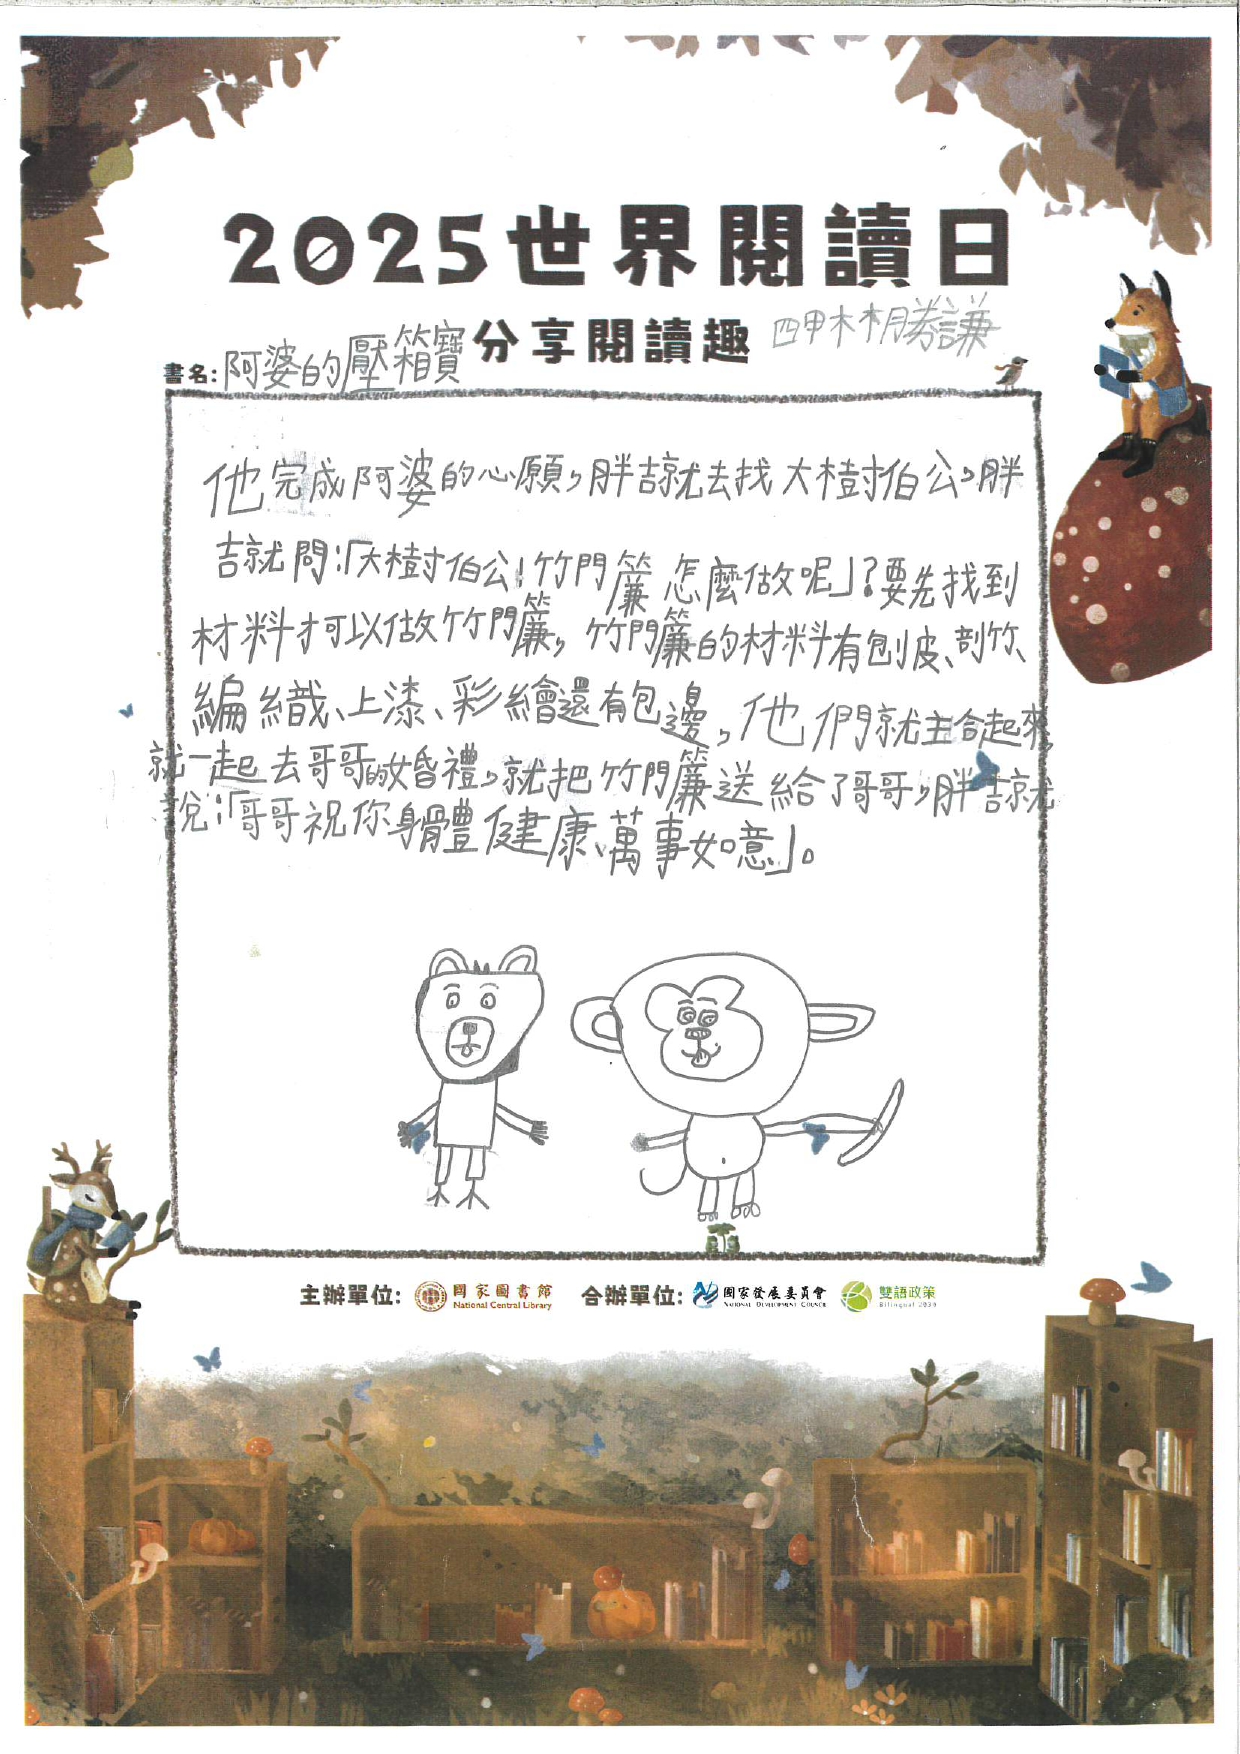 2025世界閱讀日
分享閱讀趣
四甲林楐勝謙
書名:阿婆的壓箱寶
他完成阿婆的心願,胖吉就去找大樹伯公。胖
吉就問:「大樹伯公!竹門簾怎麼做呢」?要先找到
材料才可以做竹門簾,竹門簾的材料有刨皮、剖竹、
編織、上漆、彩繪還有包邊,他們就主合起來
就一起去哥哥的婚禮,就把竹門簾送給了哥哥,胖吉就
說:「哥哥祝你身體健康、萬事如意」。
主辦單位: 國家圖書館 National Central Library 合辦單位: 國家發展委員會 National Development Council 雙語政策 Bilingual 2030